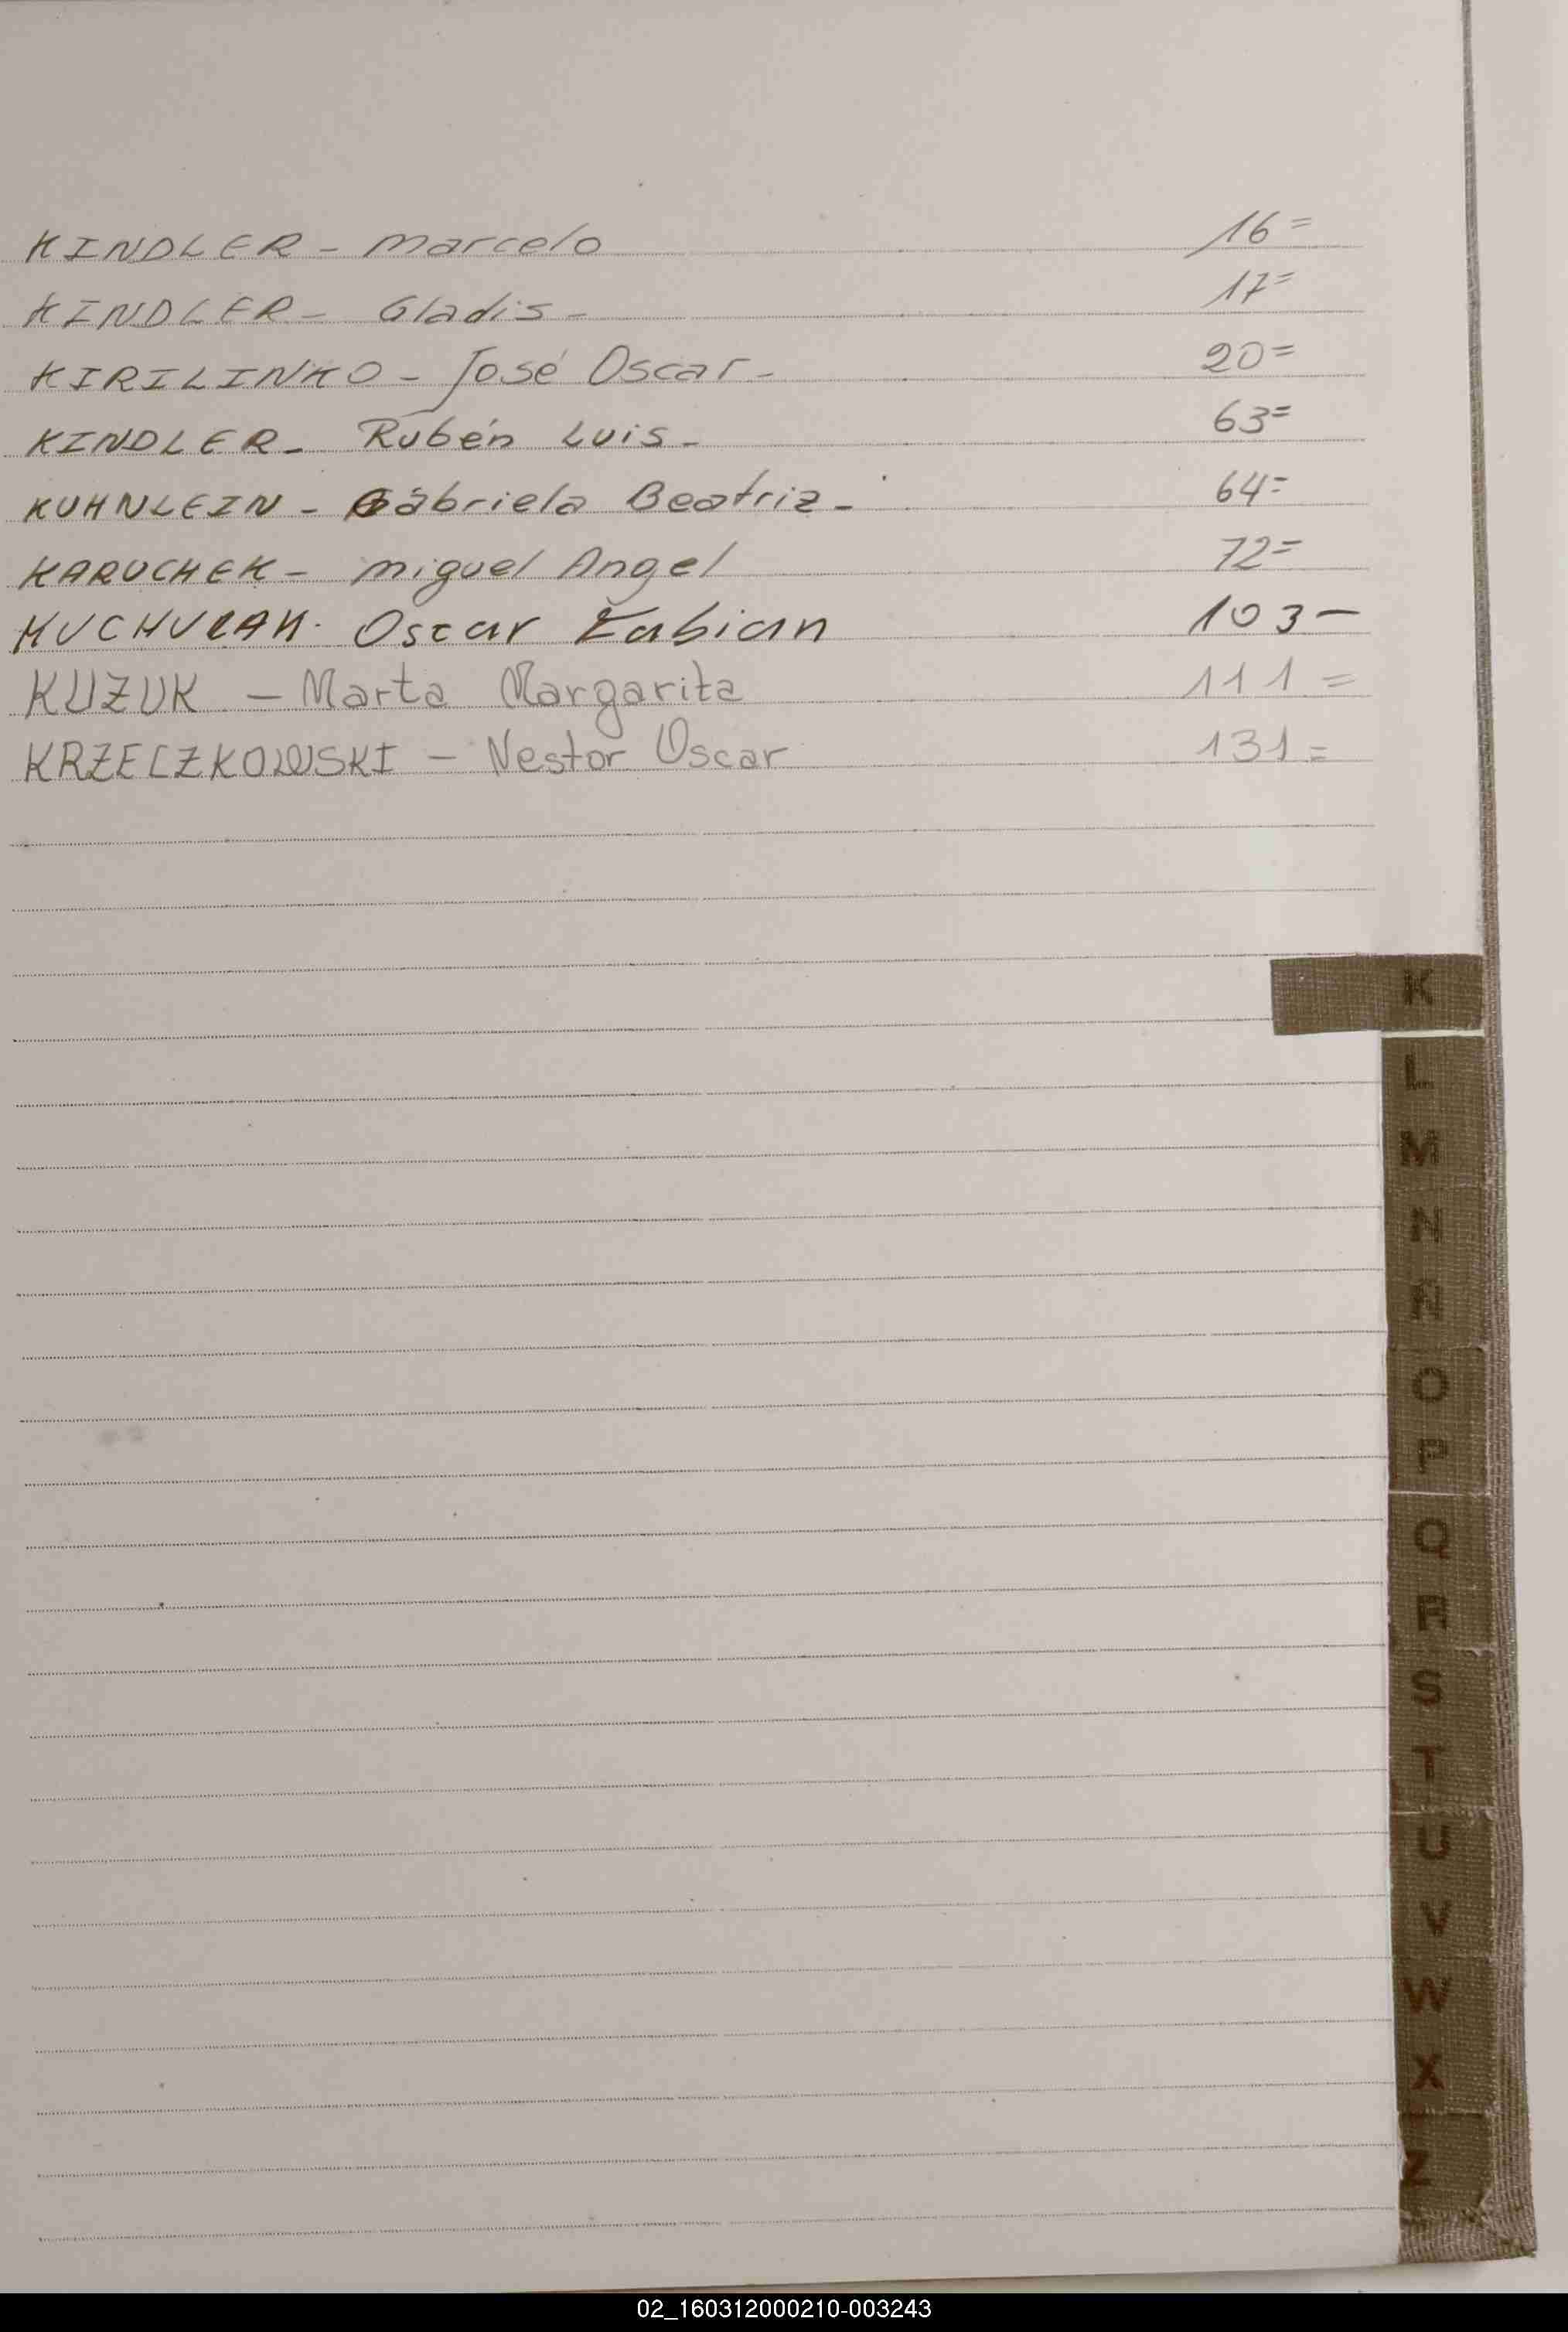 KINDLER - Marcelo 16=
KINDLER - Gladis - 17=
KIRILINKO - José Oscar - 20=
KINDLER - Rubén Luis - 63=
KUHNLEIN - Gabriela Beatriz - 64=
KARUCHEK - Miguel Angel 72=
KUCHULAK - Oscar Fabian 103-
KUZUK - Marta Margarita 111=
KRZECZKOWSKI - Nestor Oscar 131=
K
L
M
N
Ñ
O
P
Q
R
S
T
U
V
W
X
Z
02_160312000210-003243